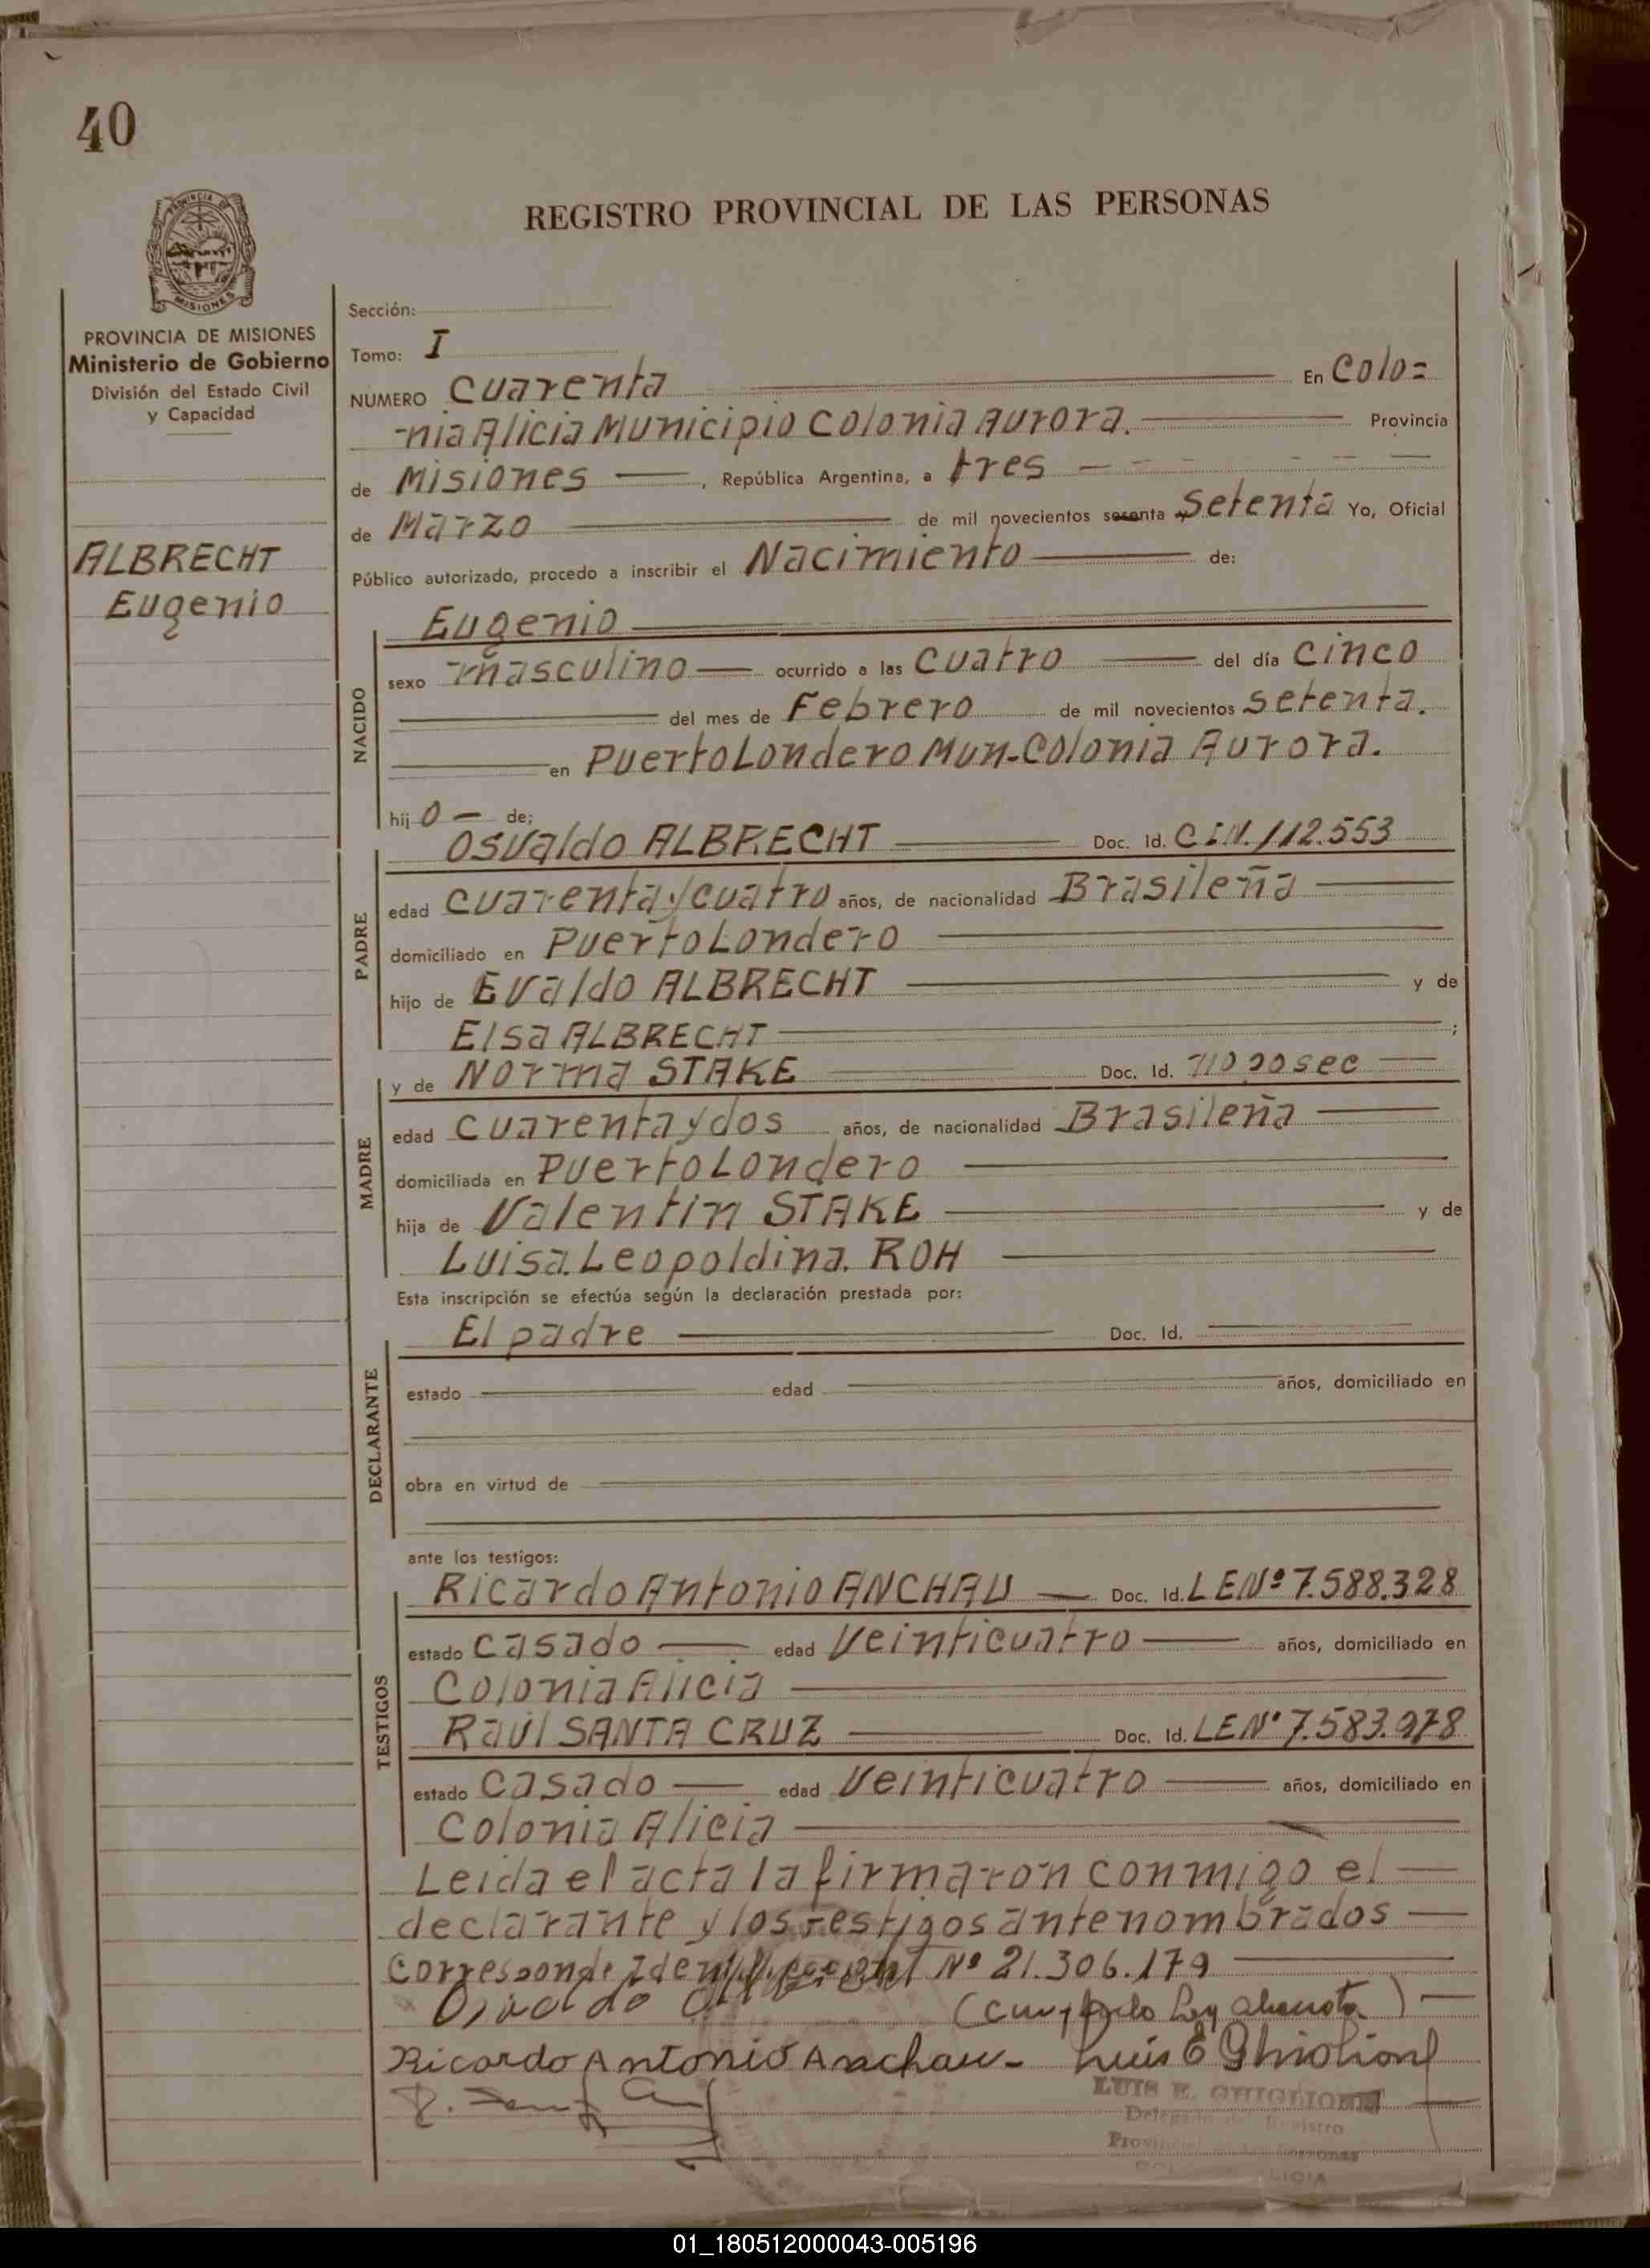 40
PROVINCIA DE MISIONES
REGISTRO PROVINCIAL DE LAS PERSONAS
PROVINCIA DE MISIONES
Ministerio de Gobierno
División del Estado Civil
y Capacidad
ALBRECHT
Eugenio
Sección:
Tomo: I
NUMERO Cuarenta En Colo=
-nia Alicia Municipio Colonia Aurora. Provincia
de Misiones , República Argentina, a tres
de Marzo de mil novecientos sesenta y Setenta Yo, Oficial
Público autorizado, procedo a inscribir el Nacimiento de:
Eugenio
NACIDO
sexo masculino ocurrido a las Cuatro del día Cinco
del mes de Febrero de mil novecientos setenta.
en Puerto Londero Mun-Colonia Aurora.
hij o de;
Osvaldo ALBRECHT Doc. Id. C.I.N. 112.553
PADRE
edad Cuarenta y cuatro años, de nacionalidad Brasileña
domiciliado en Puerto Londero
hijo de Evaldo ALBRECHT y de
Elsa ALBRECHT ;
y de Norma STAKE Doc. Id. no posee
MADRE
edad Cuarenta y dos años, de nacionalidad Brasileña
domiciliada en Puerto Londero
hija de Valentin STAKE y de
Luisa. Leopoldina. ROH
Esta inscripción se efectúa según la declaración prestada por:
El padre Doc. Id.
DECLARANTE
estado edad años, domiciliado en
obra en virtud de
ante los testigos:
Ricardo Antonio ANCHAU Doc. Id. LENº 7.588.328
TESTIGOS
estado Casado edad Veinticuatro años, domiciliado en
Colonia Alicia
Raúl SANTA CRUZ Doc. Id. LENº 7.583.978
estado Casado edad Veinticuatro años, domiciliado en
Colonia Alicia
Leida el acta la firmaron conmigo el
declarante y los testigos antenombrados
Corresponde Nº 21.306.179
Osvaldo
Ricardo Antonio Anchau- Luis E Ghiglione
LUIS E. GHIGLIONE
Delegado del Registro
Provincial
01_180512000043-005196